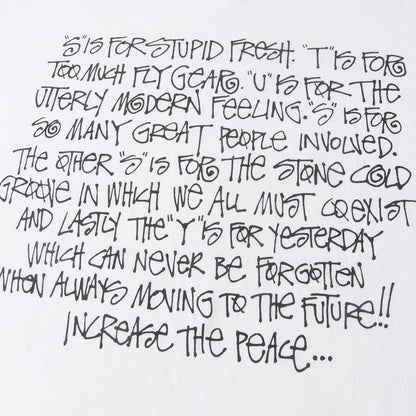 "S" IS FOR STUPID FRESH. "T" IS FOR
TOO MUCH FLY GEAR. "U" IS FOR THE
UTTERLY MODERN FEELING. "S" IS FOR
SO MANY GREAT PEOPLE INVOLVED.
THE OTHER "S" IS FOR THE STONE COLD
GROOVE IN WHICH WE ALL MUST COEXIST
AND LASTLY THE "Y" IS FOR YESTERDAY
WHICH CAN NEVER BE FORGOTTEN
WHEN ALWAYS MOVING TO THE FUTURE!!
INCREASE THE PEACE...